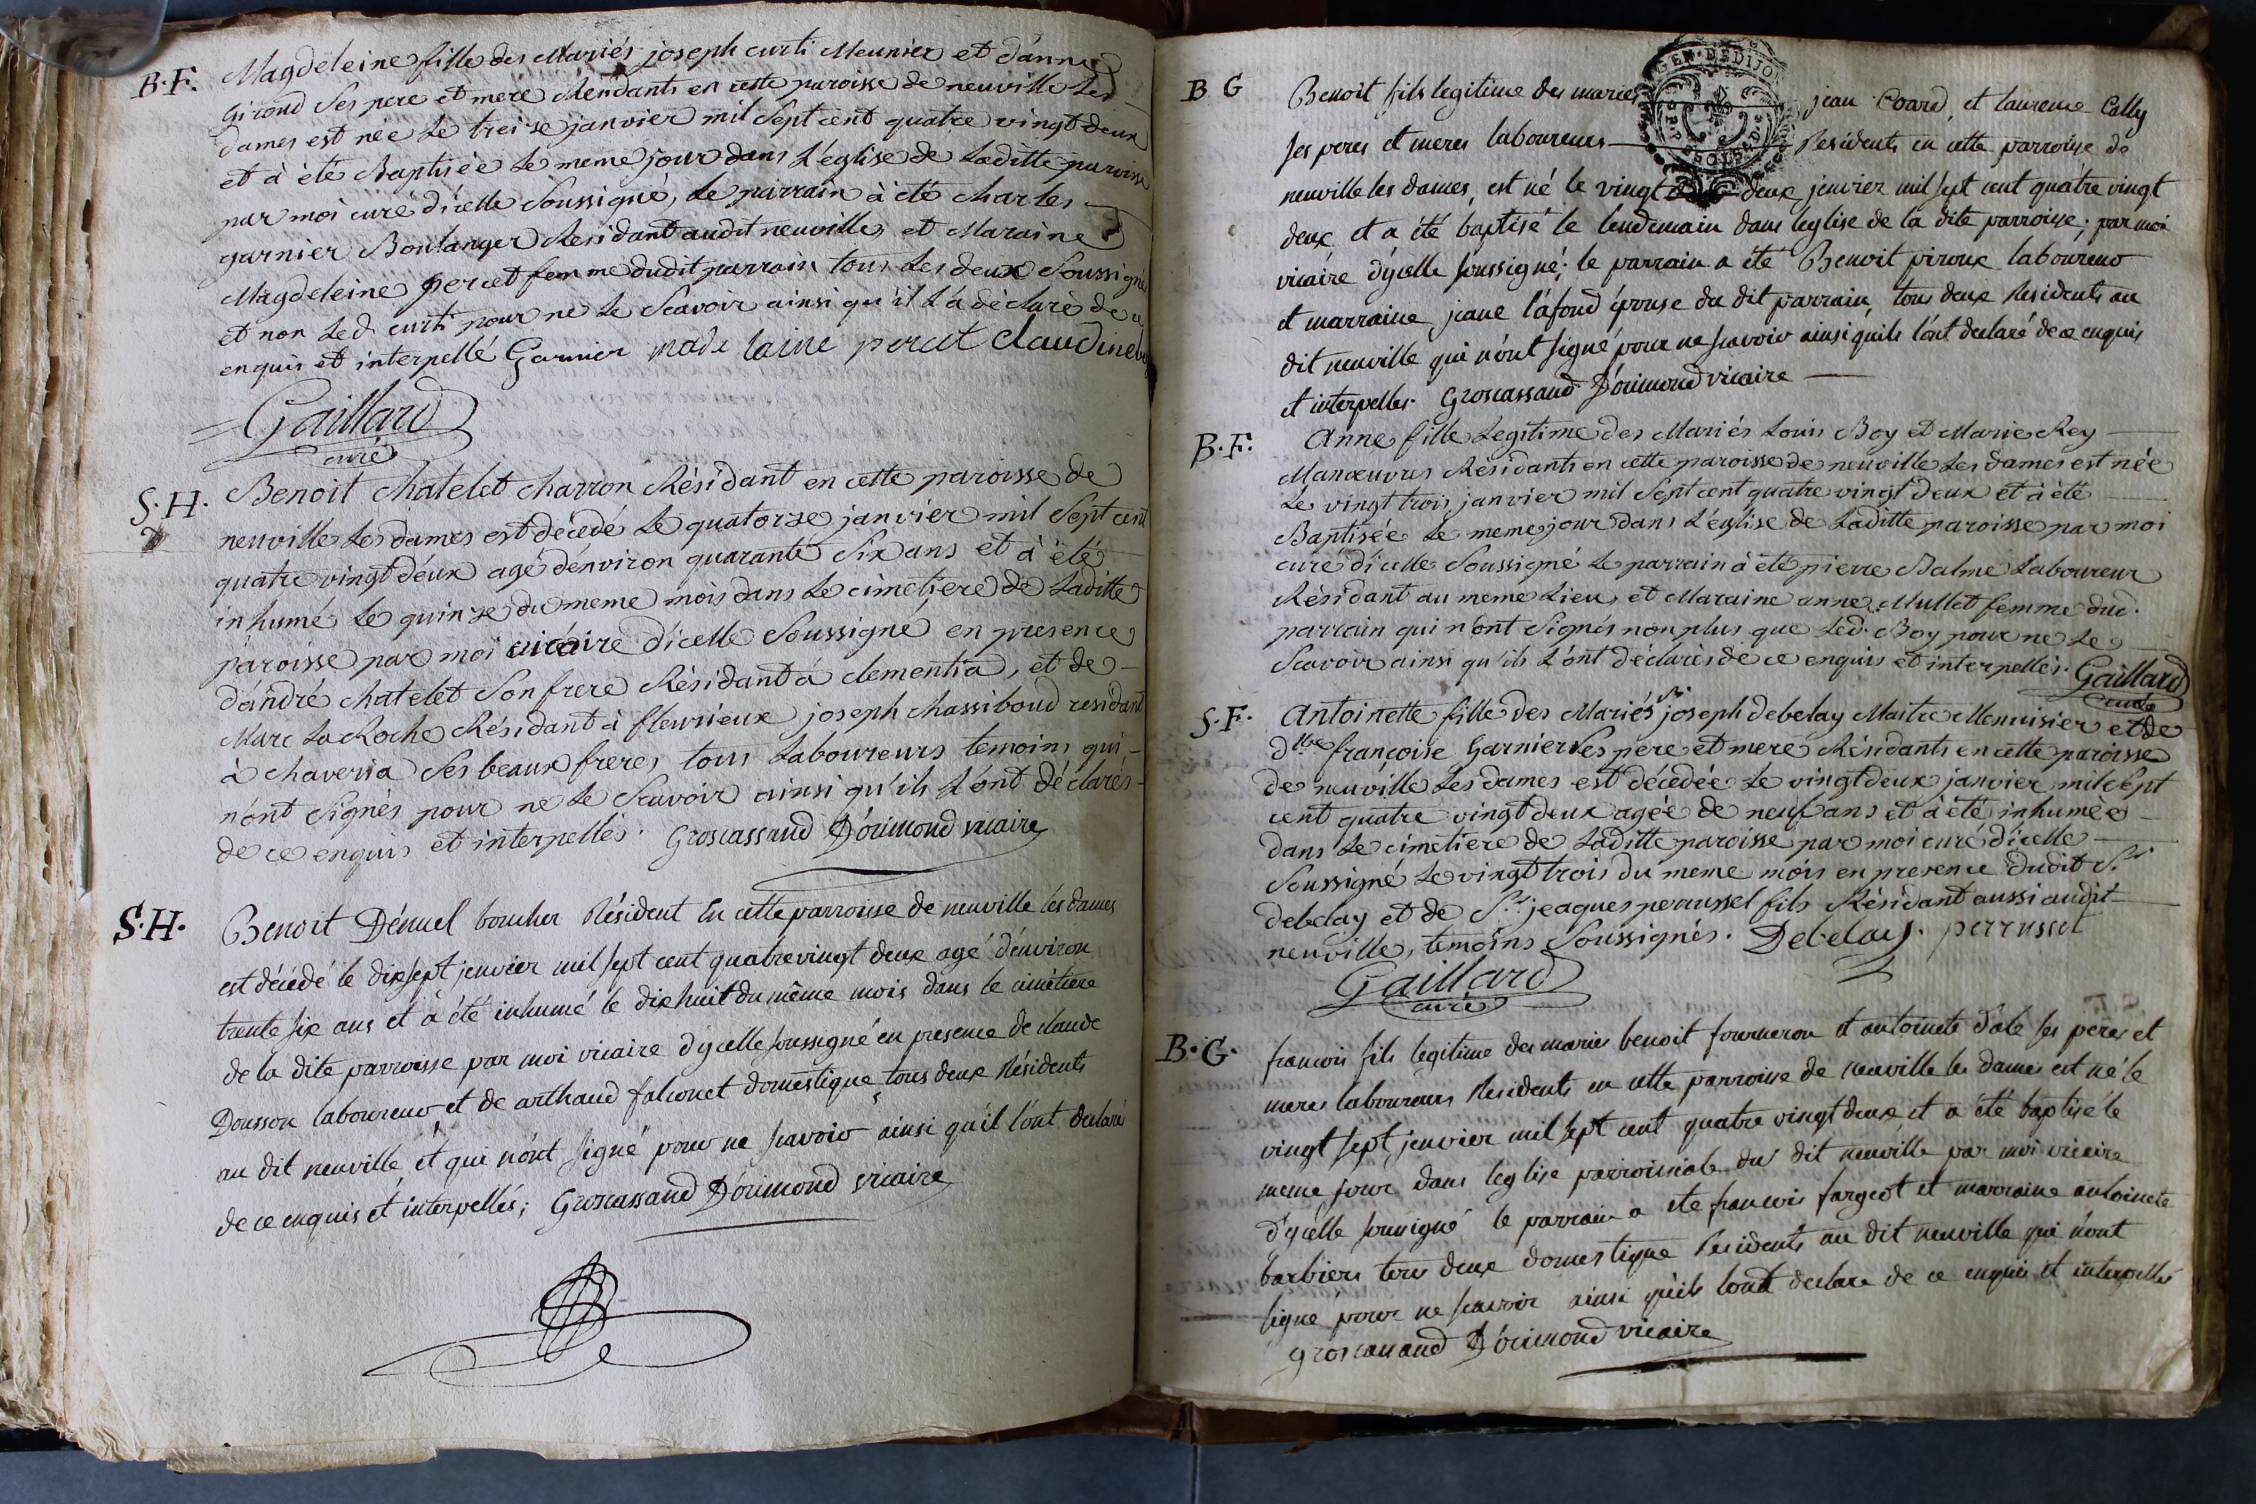 B. F. Magdeleine fille des Mariés joseph curti Meunier et d'anne
Girond Ses pere et mere Residants en cette paroisse de neuville Les
dames est née Le treize janvier mil Sept cent quatre vingt deux
et à été Baptisée Le meme jour dans L'eglise de Laditte paroisse
par moi curé d'icelle Soussigné, Le parrain à été charles
garnier Boulanger Residant audit neuville, et Maraine
Magdeleine percet femme dudit parrain tous Les deux Soussignés
et non Led. curti pour ne Le Scavoir ainsi qu'il L'a déclaré de ce
enquis et interpellé Garnier made laine percet Claudine
Gaillard
curé
S. H. Benoit chatelet charron Résidant en cette paroisse de
neuville Les dames est décédé Le quatorze janvier mil Sept cent
quatre vingt deux agé d'environ quarante Six ans et à été
inhumé Le quinze du meme mois dans Le cimetiere de Laditte
paroisse par moi vicaire d'icelle Soussigné en presence
d'andré chatelet Son frere Résidant à clementia, et de
Marc La Roche Résidant à fleurieux joseph chassiboud residant
à chaveria Ses beaux freres tous Laboureurs temoins qui
n'ont Signés pour ne Le Scavoir ainsi qu'ils L'ont déclarés
de ce enquis et interpellés. Groscassand Dorimond vicaire
S. H. Benoit Dénuel boucher Résident En cette parroisse de neuville les dames
est décédé le dix sept jenvier mil sept cent quatrevingt deux agé d'environ
trente six ans et à été inhumé le dix huit du même mois dans le cimetiere
de la dite parroisse par moi vicaire d'ycelle soussigné en presence de claude
Dousson laboureur et de arthaud falconet domestique tous deux Résidents
au dit neuville et qui n'ont signé pour ne scavoir ainsi qu'il l'ont declaré
de ce enquis et interpellés; Groscassand Dorimond vicaire
B G Benoit fils legitime des mariés jean Coard, et laurence Cally
ses peres et meres laboureurs Residents en cette parroisse de
neuville les dames, est né le vingt deux jenvier mil sept cent quatre vingt
deux et a été baptisé le lendemain dans leglise de la dite parroisse; par moi
vicaire d'ycelle soussigné; le parrain a été Benoit piroux laboureur
et marraine jeane lafond épouse du dit parrain, tous deux Residents au
dit neuville qui n'ont signé pour ne scavoir ainsi quils l'ont declaré de ce enquis
et interpellés. Groscassand Dorimond vicaire
B. F. Anne fille Legitime des Mariés Louis Boy et Marie Rey
Manoeuvres Résidants en cette paroisse de neuville Les dames est née
Le vingt trois janvier mil Sept cent quatre vingt deux et à été
Baptisée Le meme jour dans L'eglise de Laditte paroisse par moi
curé d'icelle Soussigné Le parrain à été pierre Balme Laboureur
Résidant au meme Lieu, et Maraine anne Mullet femme dud.
parrain qui n'ont Signés non plus que Led. Boy pour ne Le
Scavoir ainsi qu'ils L'ont déclarés de ce enquis et interpellés. Gaillard
curé
S. F. Antoinette fille des Mariés Sr. joseph debelay Maitre Menuisier et de
dlle francoise Garnier Ses pere et mere Résidants en cette paroisse
de neuville Les dames est décédée Le vingt deux janvier mil Sept
cent quatre vingt deux agée de neuf ans et à été inhumée
dans Le cimetiere de Laditte paroisse par moi curé d'icelle
Soussigné Le vingt trois du meme mois en presence dudit Sr.
debelay et de Sr. jeaques perrussel fils Résidant aussi audit
neuville, temoins Soussignés. Debelay. perrussel
Gaillard
curé
B. G. francois fils legitime des mariés benoit fourneron et antoinete ses peres et
meres laboureurs Residents en cette parroisse de neuville les dames est né le
vingt sept jenvier mil sept cent quatre vingt deux et a été baptisé le
meme jour dans leglise parroissiale du dit neuville par moi vicaire
d'ycelle sousigné le parrain a ete francois fargeot et marraine antoinete
barbiers tous deux domestique Residents au dit neuville qui n'ont
signé pour ne scavoir ainsi quils lont declaré de ce enquis et interpellés
groscassand Dorimond vicaire